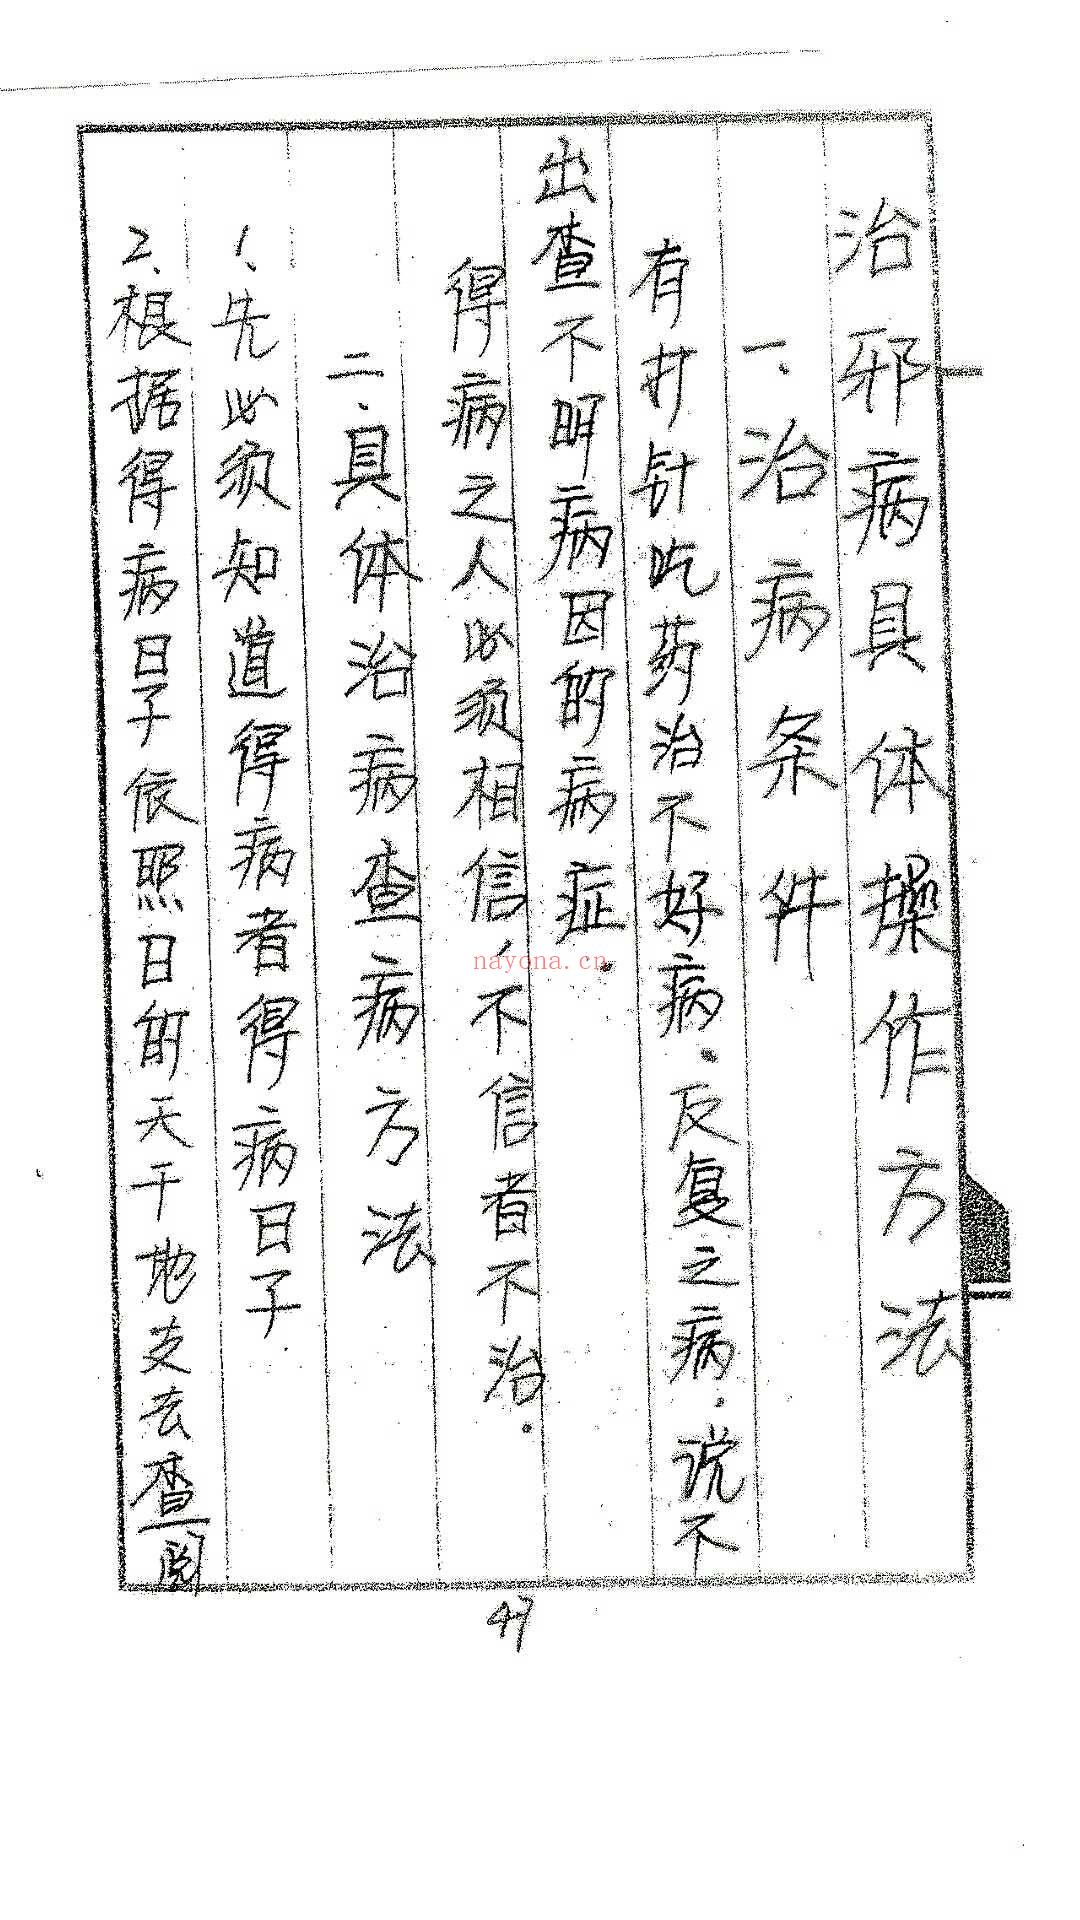 治邪病具体操作方法
一、治病条件
有打针吃药治不好病.反复之病.说不
出查不明病因的病症.
得病之人必须相信,不信者不治.
二、具体治病查病方法
1、先必须知道得病者得病日子
2、根据得病日子依照日的天干地支去查阅
47
nayona.cn